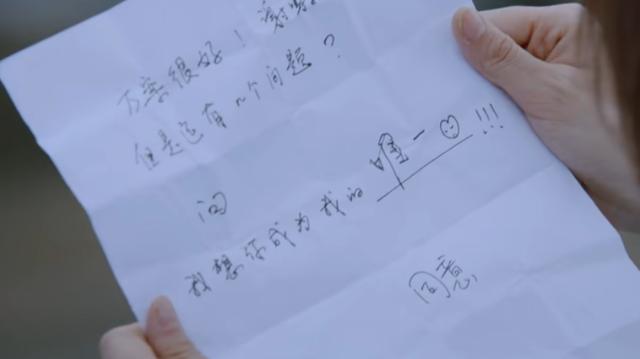 方案很好！谢谢
但是还有几个问题？
问
我想你成为我的唯一☺!!!
同意